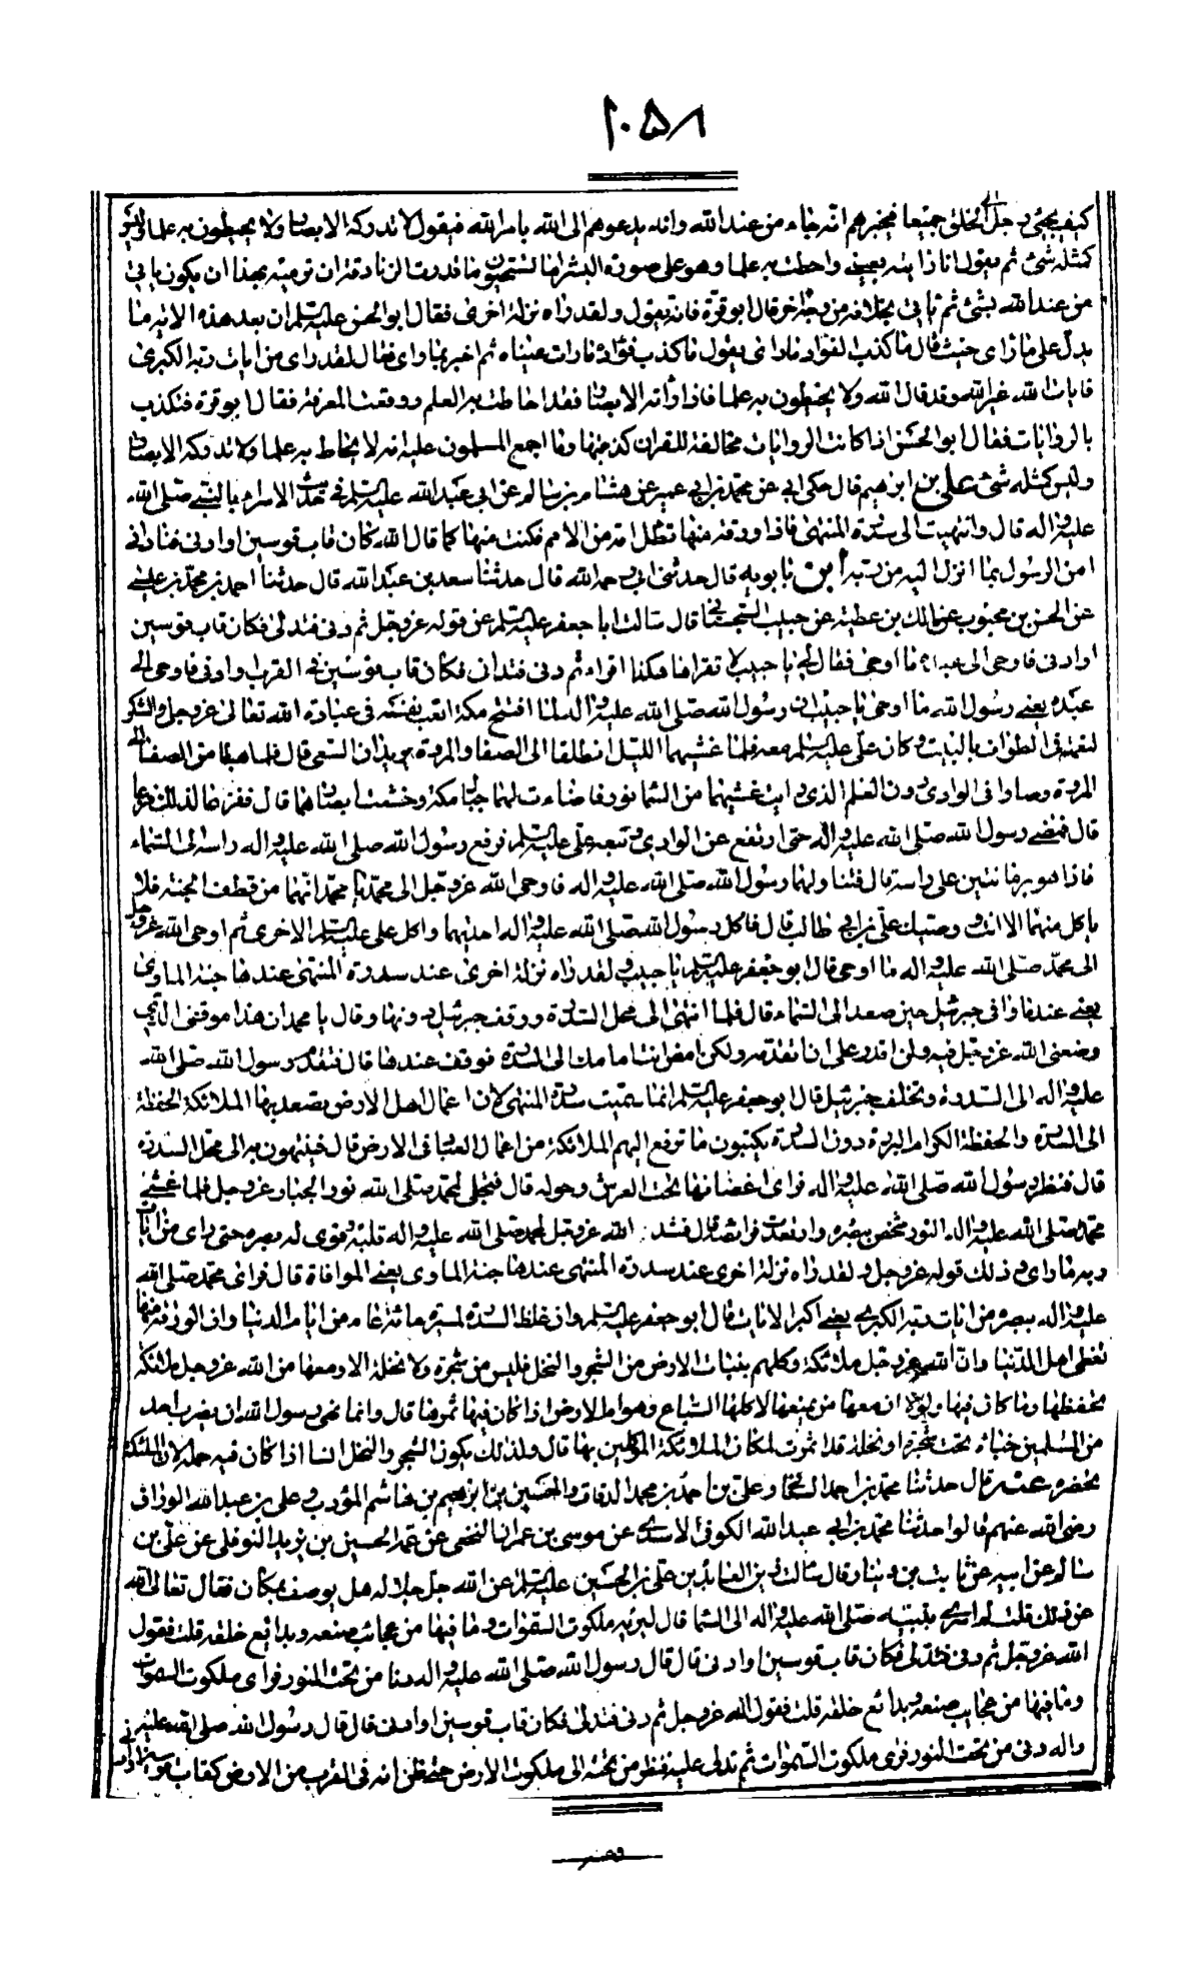 ١٠٥٨
كيف يجيئ رجل الى الخلق جميعا فيخبرهم انه جاء من عند الله وانه يدعوهم الى الله بامر الله فيقول لا تدركه الابصار ولا يحيطون به علما وليس
كمثله شئ ثم يقول انا رايته بعيني واحطت به علما وهو على صورة البشر اما تستحيون ما قدرت الزنادقة ان ترميه بهذا ان يكون ياتي
من عند الله بشئ ثم ياتي بخلافه من وجه اخر قال ابو قرة فانه يقول ولقد راه نزلة اخرى فقال ابو الحسن عليه السلم ان بعد هذه الاية ما
يدل على ما راى حيث قال ما كذب الفؤاد ما راى يقول ما كذب فؤاده ما رات عيناه ثم اخبر بما راى فقال لقد راى من ايات ربه الكبرى
فايات الله غير الله وقد قال الله ولا يحيطون به علما فاذا راته الابصار فقد احاطت به العلم ووقعت المعرفة فقال ابو قرة فتكذب
بالروايات فقال ابو الحسن اذا كانت الروايات مخالفة للقران كذبتها وما اجمع المسلمون عليه انه لا يحاط به علما ولا تدركه الابصار
وليس كمثله شئ علي بن ابرهيم قال حكى ابي عن محمد بن ابي عمير عن هشام بن سالم عن ابي عبد الله عليه السلم في حديث الاسراء بالنبي صلى الله
عليه واله قال وانتهيت الى سدرة المنتهى فاذا ورقة منها تظل امة من الامم فكنت منها كما قال الله كان قاب قوسين او ادنى فناداني
امن الرسول بما انزل اليه من ربه ابن بابويه قال حدثني ابي رحمه الله قال حدثنا سعد بن عبد الله قال حدثنا احمد بن محمد بن عيسى
عن الحسن بن محبوب عن مالك بن عطية عن حبيب السجستاني قال سالت ابا جعفر عليه السلم عن قوله عز وجل ثم دنى فتدلى فكان قاب قوسين
او ادنى فاوحى الى عبده ما اوحى فقال لي يا حبيب لا تقراها هكذا اقراء ثم دنى فتدانى فكان قاب قوسين في القرب او ادنى فاوحى الى
عبده يعني رسول الله ما اوحى يا حبيب ان رسول الله صلى الله عليه واله لما افتتح مكة اتعب نفسه في عبادة الله تعالى عز وجل والشكر
لنعمه في الطواف بالبيت وكان علي عليه السلم معه فلما غشيهما الليل انطلقا الى الصفا والمروة يريدان السعى قال فلما هبطا من الصفا الى
المروة وصارا في الوادي دون العلم الذي رايت غشيهما من السماء نور فاضاءت لهما جبال مكة وخشعت ابصارهما قال ففزعا لذلك فزعا
قال فمضى رسول الله صلى الله عليه واله حتى ارتفع عن الوادي وتبعه علي عليه السلم فرفع رسول الله صلى الله عليه واله راسه الى السماء
فاذا هو برمانتين على راسه قال فتناولهما رسول الله صلى الله عليه واله فاوحى الله عز وجل الى محمد يا محمد انهما من قطف الجنة فلا
ياكل منهما الا انت ووصيك علي بن ابي طالب قال فاكل رسول الله صلى الله عليه واله احديهما واكل علي عليه السلم الاخرى ثم اوحى الله عز وجل
الى محمد صلى الله عليه واله ما اوحى قال ابو جعفر عليه السلم يا حبيب ولقد راه نزلة اخرى عند سدرة المنتهى عندها جنة الماوى
يعني عندها وافى جبرئيل حين صعد الى السماء قال فلما انتهى الى محل السدرة ووقف جبرئيل دونها وقال يا محمد ان هذا موقفي الذي
وضعني الله عز وجل فيه ولن اقدر على ان اتقدمه ولكن امض انت امامك الى السدرة فوقف عندها قال فتقدم رسول الله صلى الله
عليه واله الى السدرة وتخلف جبرئيل قال ابو جعفر عليه السلم انما سميت سدرة المنتهى لان اعمال اهل الارض تصعد بها الملائكة الحفظة
الى السدرة والحفظة الكرام البررة دون السدرة يكتبون ما ترفع اليهم الملائكة من اعمال العباد في الارض قال فينتهون به الى محل السدرة
قال فنظر رسول الله صلى الله عليه واله فراى اغصانها تحت العرش وحوله قال فتجلى لمحمد صلى الله نور الجبار عز وجل فلما غشي
محمد صلى الله عليه واله النور شخص ببصره وارتعدت فرائصه قال فشد الله عز وجل لمحمد صلى الله عليه واله قلبه وقوى له بصره حتى راى من ايات
ربه ما راى وذلك قوله عز وجل ولقد راه نزلة اخرى عند سدرة المنتهى عندها جنة الماوى يعني الموافاة قال فراى محمد صلى الله
عليه واله ببصره من ايات ربه الكبرى يعني اكبر الايات قال ابو جعفر عليه السلم وان غلظ السدرة لمسيرة مائة عام من ايام الدنيا وان الورقة منها
تغطى اهل الدنيا وان الله عز وجل ملائكة وكلهم بنبات الارض من الشجر والنخل فليس من شجرة ولا نخلة الا ومعها من الله عز وجل ملائكة
تحفظها وما كان فيها ولولا ان معها من يمنعها لاكلها السباع وهوام الارض اذا كان فيها ثمرها قال وانما نهى رسول الله ان يضرب احد
من المسلمين خباء تحت شجرة او نخلة قد اثمرت لمكان الملائكة الموكلين بها قال ولذلك يكون الشجر والنخل انسا اذا كان فيه حمله لان الملئكة
تحضره عنه قال حدثنا محمد بن احمد السناني وعلي بن احمد بن محمد الدقاق والحسين بن ابرهيم بن هاشم المؤدب وعلي بن عبد الله الوراق
رضى الله عنهم قالوا حدثنا محمد بن ابي عبد الله الكوفي الاسدي عن موسى بن عمران النخعي عن عمه الحسين بن يزيد النوفلي عن علي بن
سالم عن ابيه عن ثابت بن دينار قال سالت زين العابدين علي بن الحسين عليه السلم عن الله جل جلاله هل يوصف بمكان فقال تعالى الله
عن ذلك قلت فلم اسرى بنبيه صلى الله عليه واله الى السماء قال ليريه ملكوت السموات وما فيها من عجائب صنعه وبدائع خلقه قلت فقول
الله عز وجل ثم دنى فتدلى فكان قاب قوسين او ادنى قال قال رسول الله صلى الله عليه واله دنا من تحت النور فراى ملكوت السموات
وما فيها من عجايب صنعه وبدائع خلقه قلت فقول الله عز وجل ثم دنى فتدلى فكان قاب قوسين او ادنى قال قال رسول الله صلى الله عليه
واله دنى من تحت النور فراى ملكوت السموات ثم تدلى عليه فنظر من تحته الى ملكوت الارض حتى ظن انه في القرب من الارض كقاب قوسين او ادنى